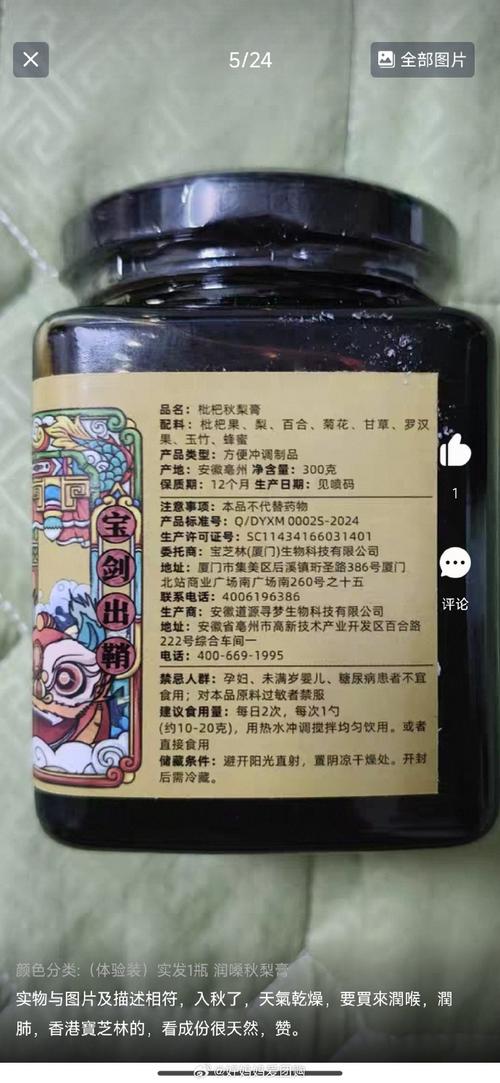 5/24
全部图片
品名：枇杷秋梨膏
配料：枇杷果、梨、百合、菊花、甘草、罗汉
果、玉竹、蜂蜜
产品类型：方便冲调制品
产地：安徽亳州 净含量：300克
保质期：12个月 生产日期：见喷码
注意事项：本品不代替药物
产品标准号：Q/DYXM 0002S-2024
生产许可证号：SC11434166031401
委托商：宝芝林(厦门)生物科技有限公司
地址：厦门市集美区后溪镇珩圣路386号厦门
北站商业广场南广场南260号之十五
联系电话：4006196386
生产商：安徽道源寻梦生物科技有限公司
地址：安徽省亳州市高新技术产业开发区百合路
222号综合车间一
电话：400-669-1995
禁忌人群：孕妇、未满岁婴儿、糖尿病患者不宜
食用；对本品原料过敏者禁服
建议食用量：每日2次，每次1勺
(约10-20克)，用热水冲调搅拌均匀饮用。或者
直接食用
储藏条件：避开阳光直射，置阴凉干燥处。开封
后需冷藏。
宝剑出鞘
1
评论
颜色分类:（体验装）实发1瓶 润嗓秋梨膏
实物与图片及描述相符，入秋了，天氣乾燥，要買來潤喉，潤
肺，香港寶芝林的，看成份很天然，赞。